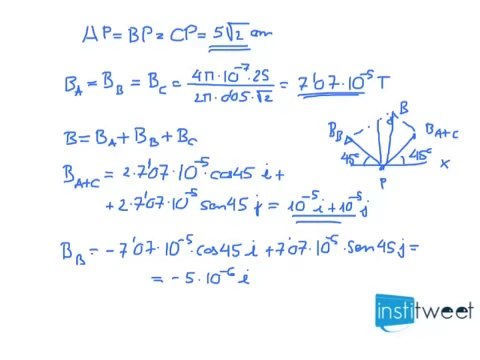 AP = BP = CP = 5√2 cm
B_A = B_B = B_C = 4π·10^-7·25 / 2π·0'05·√2 = 7'07·10^-5 T
B = B_A + B_B + B_C
B_A+C = 2·7'07·10^-5·cos45 i +
+ 2·7'07·10^-5 sen45 j = 10^-5 i + 10^-5 j
B_B = -7'07·10^-5·cos45 i + 7'07·10^-5·sen45 j =
= -5·10^-6 i
B
B_B
B_A+C
45º
45º
x
P
institweet